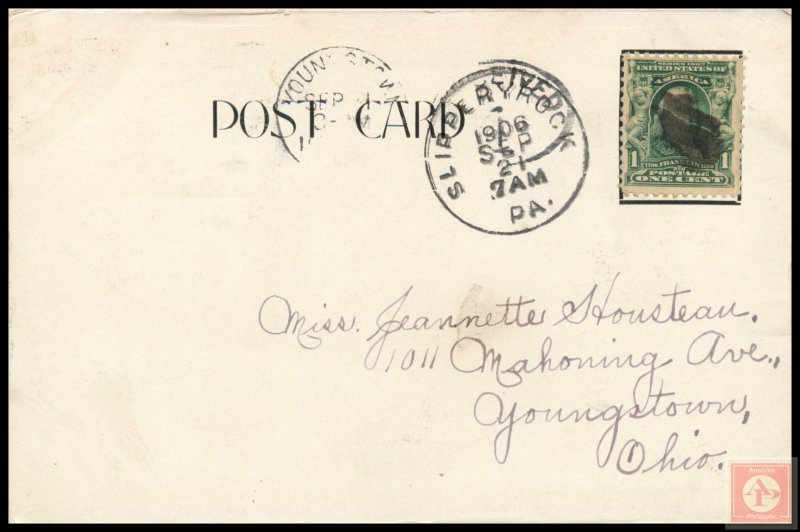 YOUNGSTOWN
SEP
POST CARD
RECEIVED
SLIPPERYROCK
1906
SEP
21
7AM
PA.
SERIES 1902
UNITED STATES OF
AMERICA
1 1706 FRANKLIN 1790 1
POSTAGE
ONE CENT
Miss. Jeannette Housteau.
1011 Mahoning Ave.,
Youngstown,
Ohio.
Ansonia
AP
Philatelic